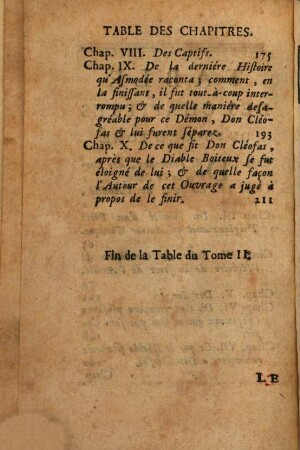 TABLE DES CHAPITRES.
Chap. VIII. Des Captifs. 175
Chap. IX. De la derniére Histoire
qu'Asmodée raconta; comment, en
la finissant, il fut tout-à-coup inter-
rompu; & de quelle maniére desa-
gréable pour ce Démon, Don Cléo-
fas & lui furent séparez. 193
Chap. X. De ce que fit Don Cléofas,
après que le Diable Boiteux se fut
éloigné de lui; & de quelle façon
l'Auteur de cet Ouvrage a jugé à
propos de le finir. 211
Fin de la Table du Tome II.
LE